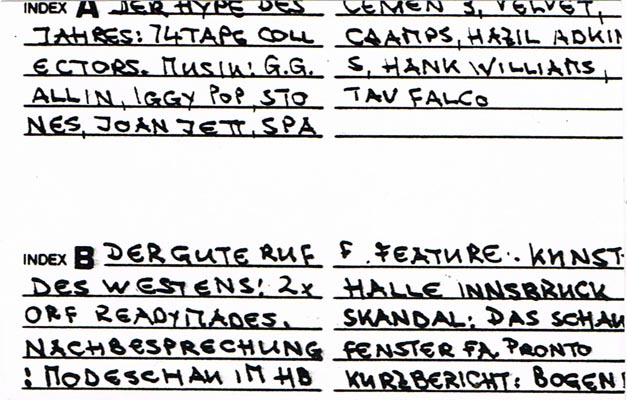 INDEX A DER HYPE DES
JAHRES: 74TAPE COLL
ECTORS. MUSIK: G.G.
ALLIN, IGGY POP, STO
NES, JOAN JETT, SPA
CEMEN 3, VELVET,
CRAMPS, HAZIL ADKIN
S, HANK WILLIAMS,
TAV FALCO
INDEX B DER GUTE RUF
DES WESTENS: 2x
ORF READYMADES.
NACHBESPRECHUNG
: MODESCHAU IM HB
F. FEATURE: KUNST
HALLE INNSBRUCK
SKANDAL: DAS SCHAU
FENSTER FA. PRONTO
KURZBERICHT: BOGEN